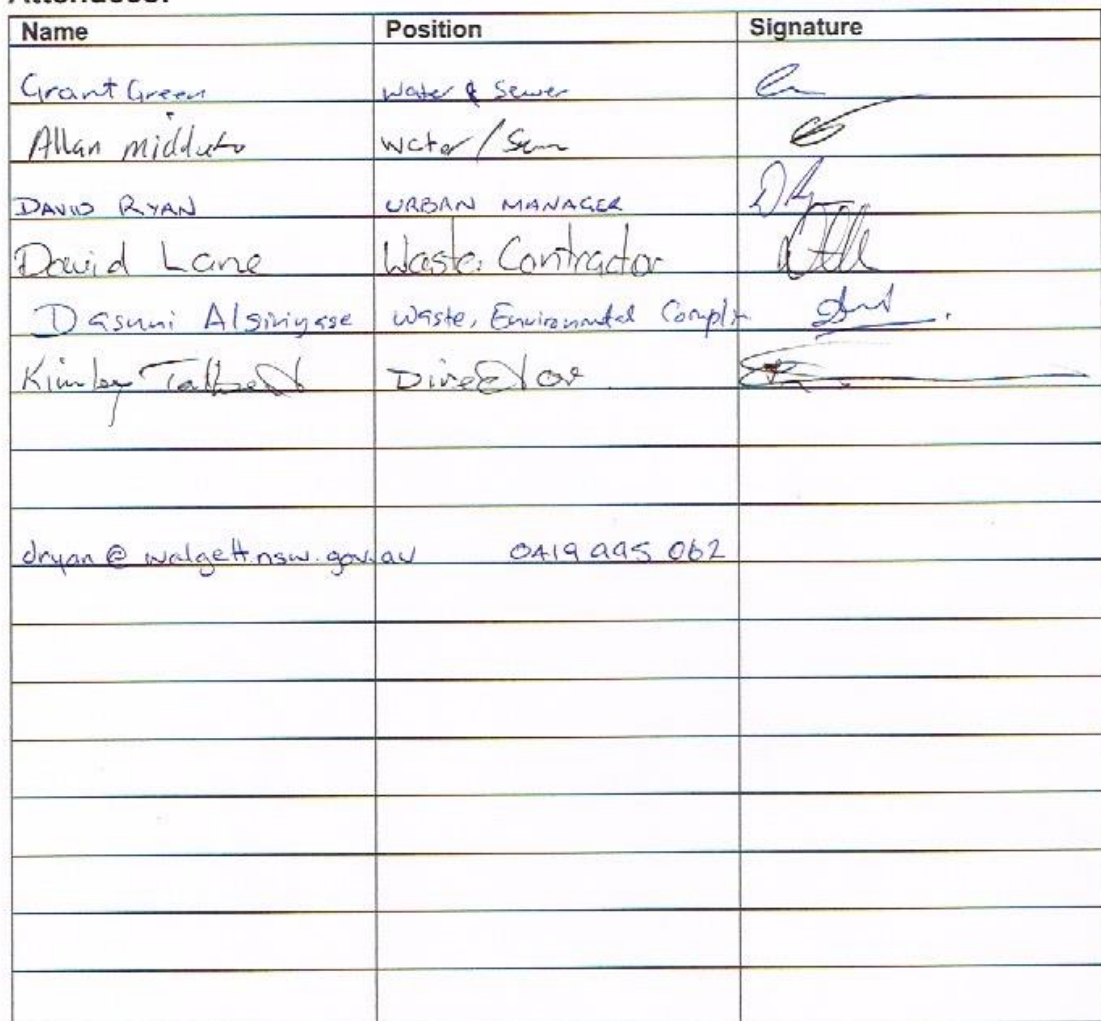 Name Position Signature
Grant Green Water & Sewer
Allan Water/
DAVID RYAN URBAN MANAGER
David Lane Waste Contractor
Dasuni Waste, Environmental
Kimley Talbert Director
dryan@walgett.nsw.gov.au 0419 995 062